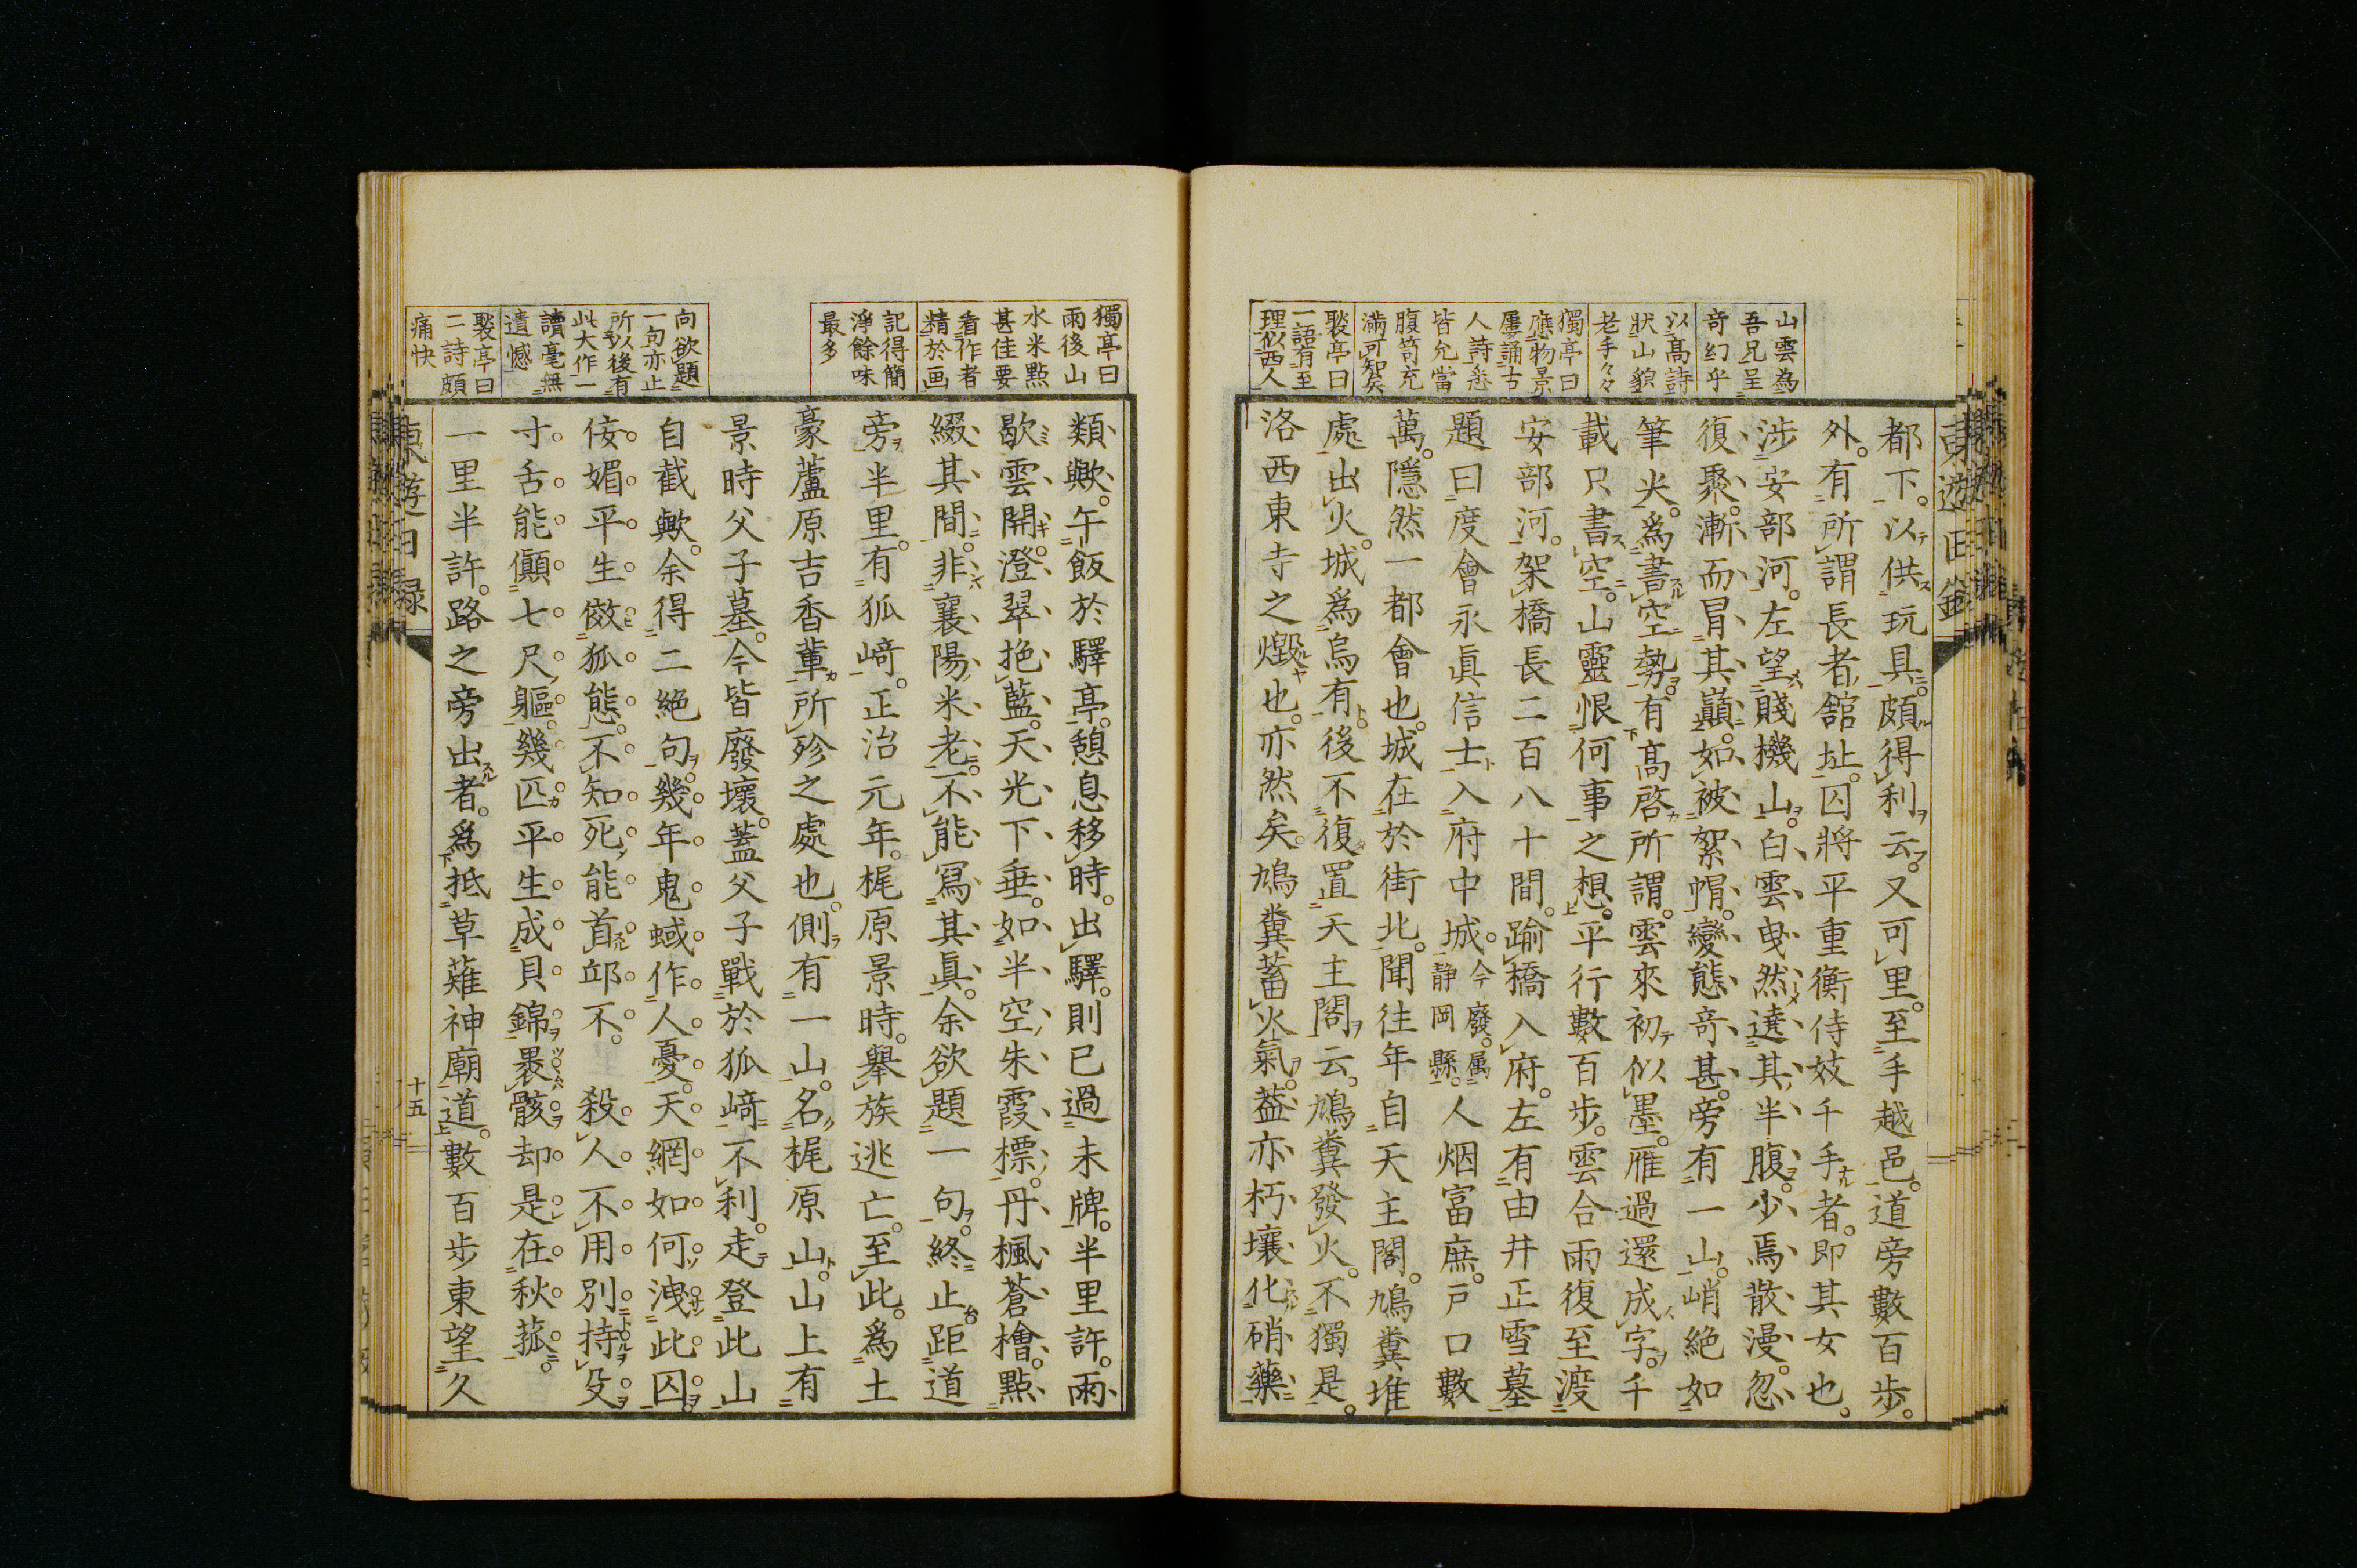 山雲爲
吾兄呈
奇幻乎
以高詩
狀山貌
老手々々
獨亭曰
應物景
屢誦古
人詩悉
皆允當
腹笥充
滿可知矣
聚亭曰
一語有至
理似西人
東遊日錄
都下。以供玩具。頗得利云。又可里。至手越邑。道旁數百步。
外。有所謂長者舘址。囚將平重衡侍妓千手者。即其女也。
涉安部河。左望賤機山。白雲曳然遶其半腹。少焉散漫。忽
復聚。漸而冒其巓。如被絮帽。變態奇甚。旁有一山。峭絶如
筆尖。爲書空勢。有高啓所謂。雲來初似墨。雁過還成字。千
載只書空。山靈恨何事之想。平行數百步。雲合雨復至。渡
安部河。架橋長二百八十間。踰橋入府。左有由井正雪墓
題曰度會永眞信士入府中城。今廢。屬靜岡縣。人烟富庶。戸口數
萬。隱然一都會也。城在於街北。聞往年自天主閣。鳩糞堆
處出火。城爲烏有。後不復置天主閣云。鳩糞發火。不獨是。
洛西東寺之燬也。亦然矣。鳩糞蓄火氣。蓋亦朽壤化硝藥
獨亭曰
雨後山
水米點
甚佳要
看作者
精於画
記得簡
淨餘味
最多
向欲題
一句亦止
所以後有
此大作一
讀毫無
遺憾
聚亭曰
二詩頗
痛快
類歟。午飯於驛亭。憩息移時。出驛。則已過未牌。半里許。雨
歇雲開。澄翠挹藍。天光下垂。如半空朱霞標。丹楓蒼檜。點
綴其間。非襄陽米老。不能冩其眞。余欲題一句。終止。距道
旁半里。有狐﨑。正治元年。梶原景時。舉族逃亡。至此。爲土
豪蘆原吉香輩所殄之處也。側有一山。名梶原山。山上有
景時父子墓。今皆廢壞。蓋父子戰於狐﨑不利。走登此山
自截歟。余得二絶句。幾年鬼蜮作人憂。天網如何洩此囚。
侫媚平生傚狐態。不知死能首邱不。　殺人不用別持殳
寸舌能儩七尺軀。幾匹平生成貝錦。褁骸却是在秋菰。
一里半許。路之旁出者。爲抵草薙神廟道。數百步東望久
東遊日録
十五